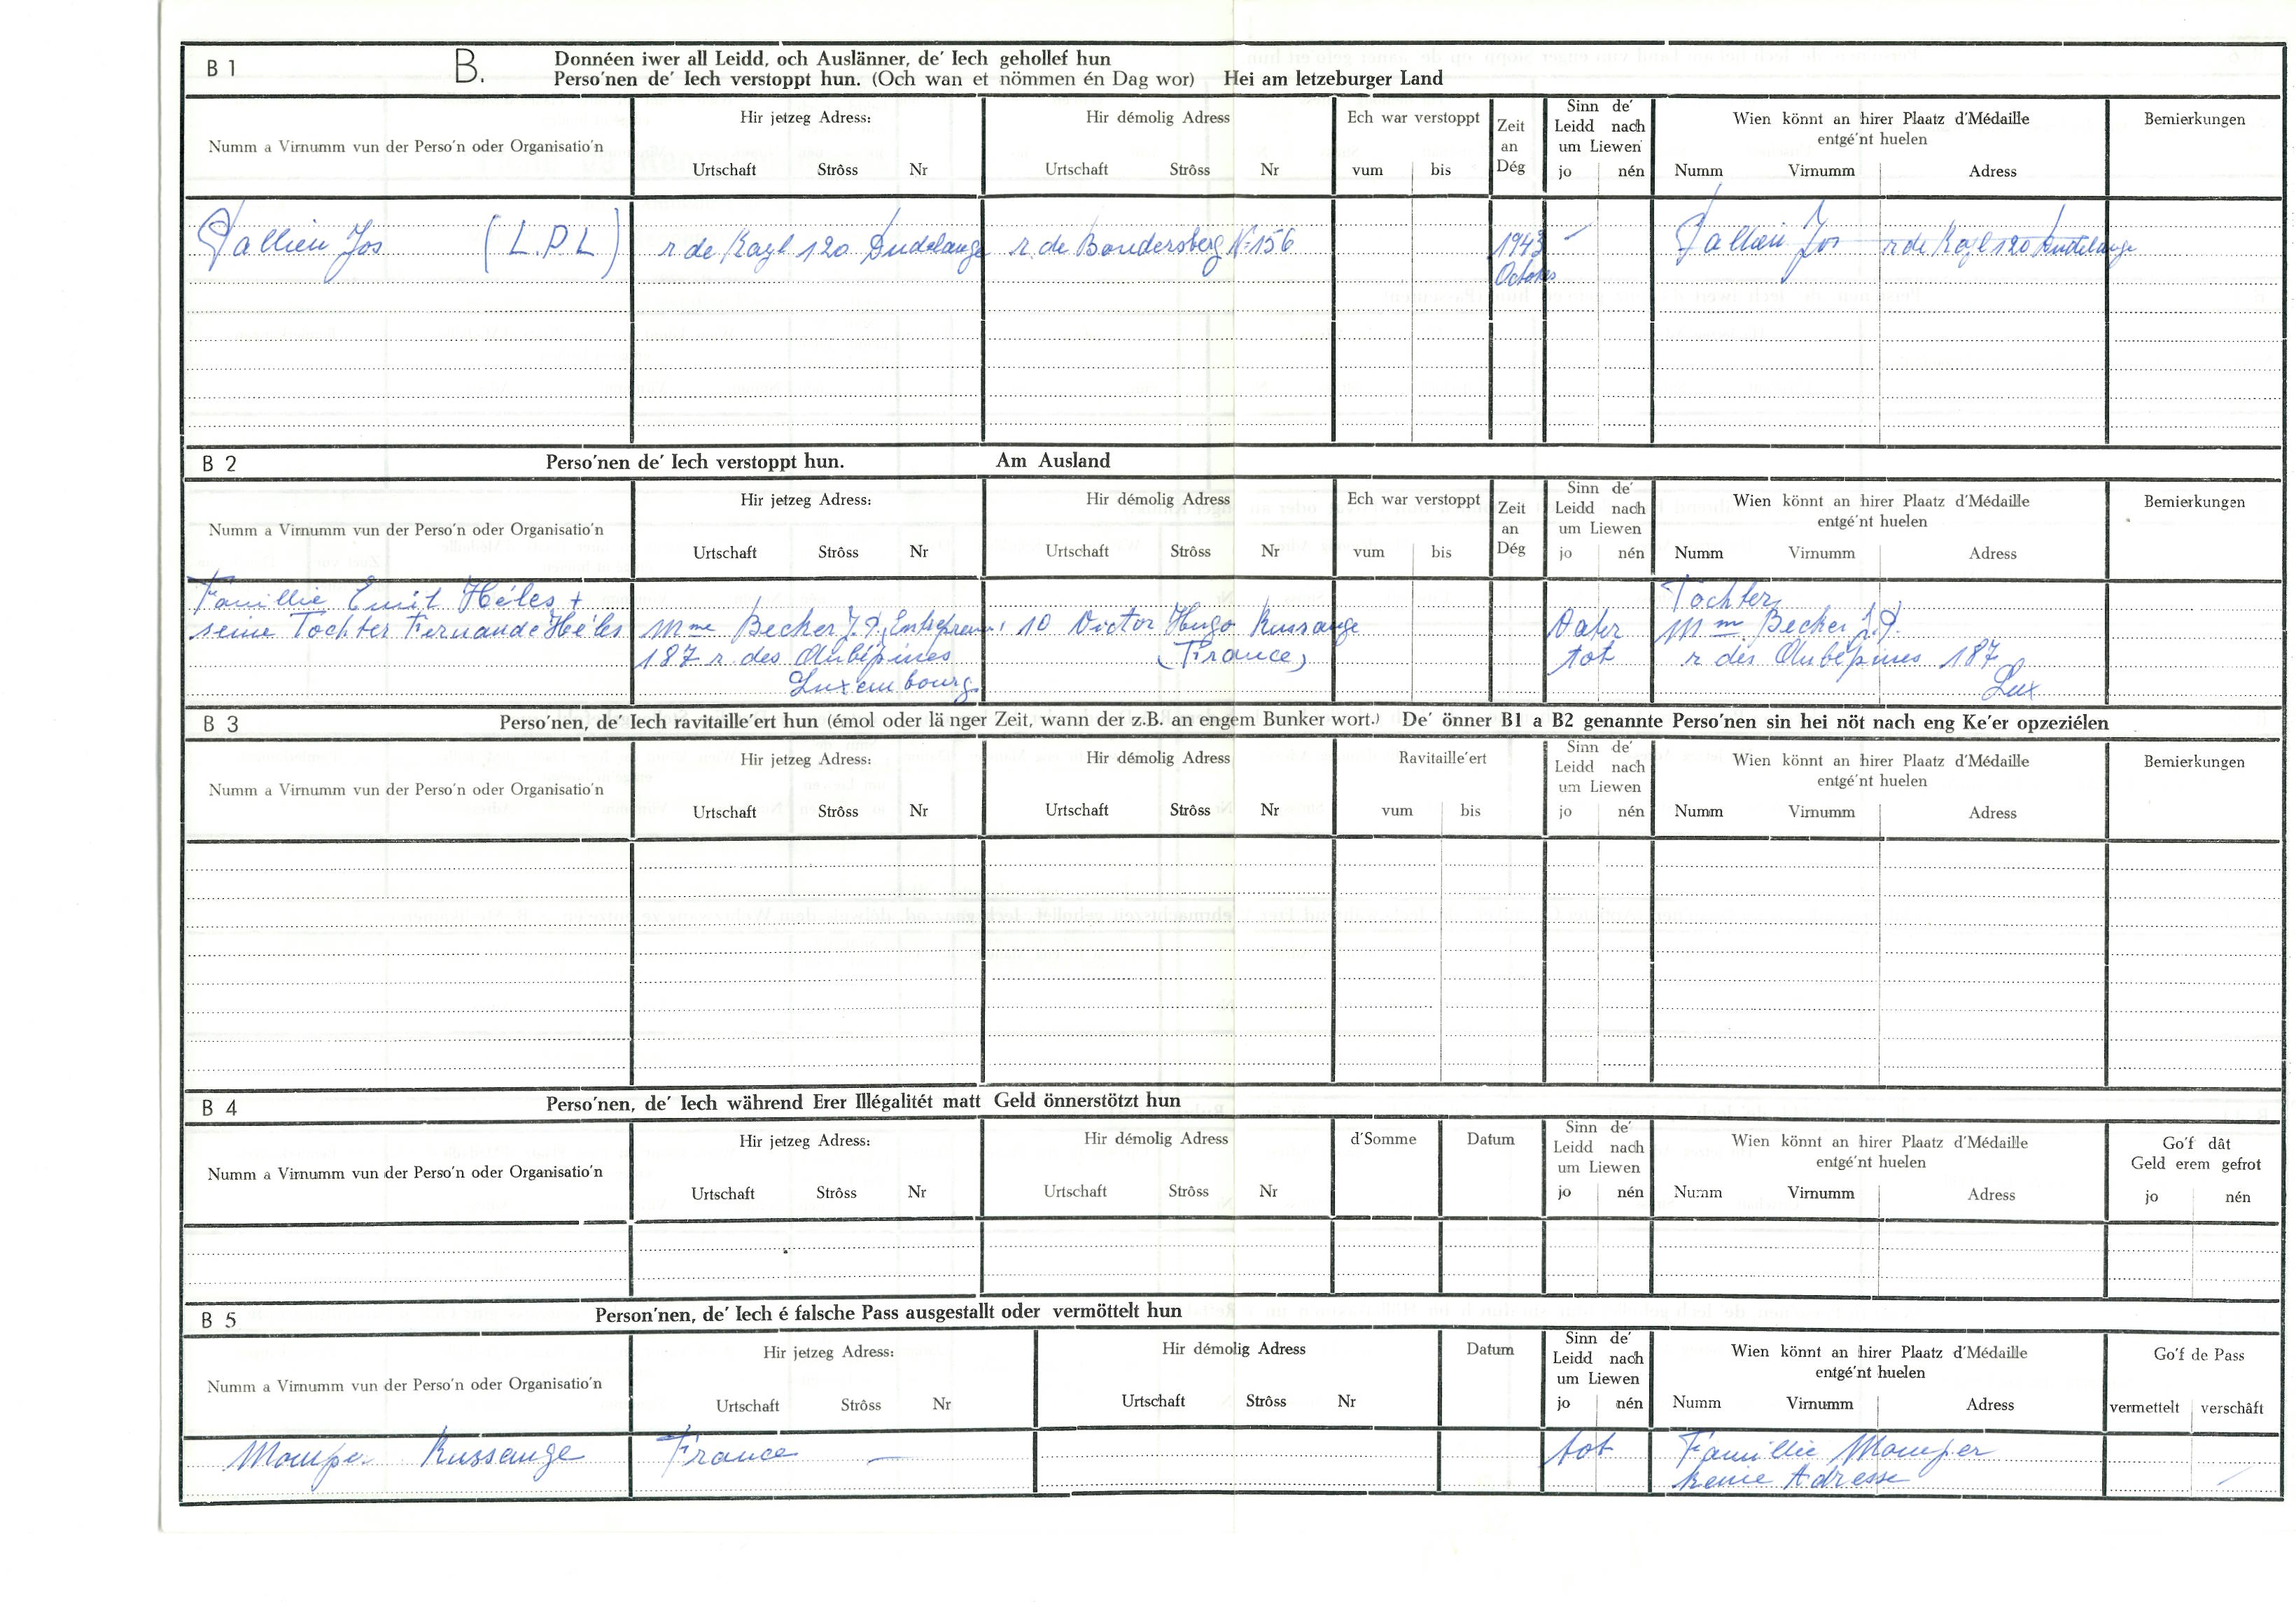 B 1
B.
Donnéen iwer all Leidd, och Auslänner, de' Iech gehollef hun
Perso'nen de' Iech verstoppt hun. (Och wan et nömmen én Dag wor) Hei am letzeburger Land
Numm a Virnumm vun der Perso'n oder Organisatio'n
Hir jetzeg Adress:
Urtschaft Strôss Nr
Hir démolig Adress
Urtschaft Strôss Nr
Ech war verstoppt
vum bis
Zeit
an
Dég
Sinn de'
Leidd nach
um Liewen
jo nén
Wien könnt an hirer Plaatz d'Médaille
entgé'nt huelen
Numm Virnumm Adress
Bemierkungen
Jos (L.P.L) r de Kayl 120 Dudelange r. de Boudersberg № 156 1943 – Jos r de Kayl 120 Dudelange
October
B 2
Perso'nen de' Iech verstoppt hun. Am Ausland
Numm a Virnumm vun der Perso'n oder Organisatio'n
Hir jetzeg Adress:
Urtschaft Strôss Nr
Hir démolig Adress
Urtschaft Strôss Nr
Ech war verstoppt
vum bis
Zeit
an
Dég
Sinn de'
Leidd nach
um Liewen
jo nén
Wien könnt an hirer Plaatz d'Médaille
entgé'nt huelen
Numm Virnumm Adress
Bemierkungen
Famillie Emil Héles + Tochter
seine Tochter Fernande Héles Mme Becker J.P. Entrepreneur 10 Victor Hugo Russange Vater Mm Becker J.P.
187 r des Aubépines (France) tot r des Aubépines 187
Luxembourg Lux
B 3
Perso'nen, de' Iech ravitaille'ert hun (émol oder länger Zeit, wann der z.B. an engem Bunker wort.) De' önner B1 a B2 genannte Perso'nen sin hei nöt nach eng Ke'er opzeziélen
Numm a Virnumm vun der Perso'n oder Organisatio'n
Hir jetzeg Adress:
Urtschaft Strôss Nr
Hir démolig Adress
Urtschaft Strôss Nr
Ravitaille'ert
vum bis
Sinn de'
Leidd nach
um Liewen
jo nén
Wien könnt an hirer Plaatz d'Médaille
entgé'nt huelen
Numm Virnumm Adress
Bemierkungen
B 4
Perso'nen, de' Iech während Erer Illégalitét matt Geld önnerstötzt hun
Numm a Virnumm vun der Perso'n oder Organisatio'n
Hir jetzeg Adress:
Urtschaft Strôss Nr
Hir démolig Adress
Urtschaft Strôss Nr
d'Somme
Datum
Sinn de'
Leidd nach
um Liewen
jo nén
Wien könnt an hirer Plaatz d'Médaille
entgé'nt huelen
Numm Virnumm Adress
Go'f dât
Geld erem gefrot
jo nén
B 5
Person'nen, de' Iech é falsche Pass ausgestallt oder vermöttelt hun
Numm a Virnumm vun der Perso'n oder Organisatio'n
Hir jetzeg Adress:
Urtschaft Strôss Nr
Hir démolig Adress
Urtschaft Strôss Nr
Datum
Sinn de'
Leidd nach
um Liewen
jo nén
Wien könnt an hirer Plaatz d'Médaille
entgé'nt huelen
Numm Virnumm Adress
Go'f de Pass
vermettelt verschâft
Momper Russange France — tot Famillie Momper
keine Adresse